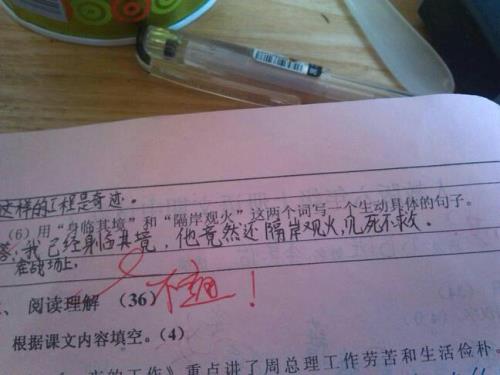 这样的工程是奇迹。
(6) 用“身临其境”和“隔岸观火”这两个词写一个生动具体的句子。
答:我已经身临其境,他竟然还隔岸观火,见死不救。
在战场上,
、阅读理解 (36)
!
根据课文内容填空。(4)
的工作》重点讲了周总理工作劳苦和生活俭朴。